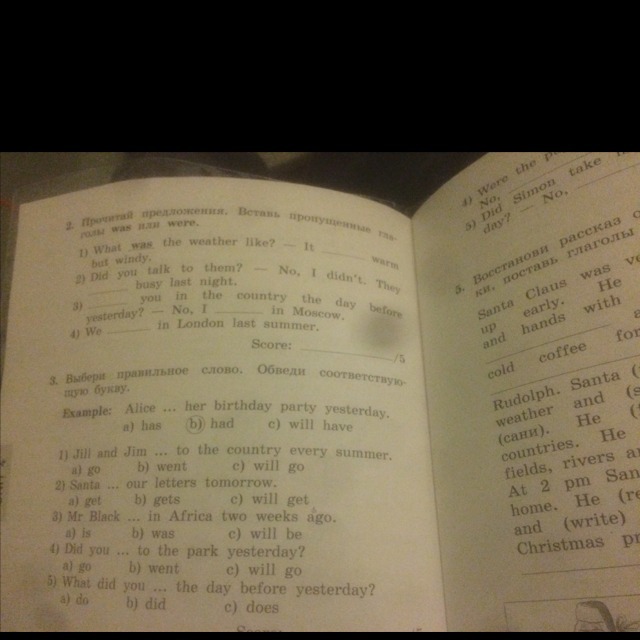 2. Прочитай предложения. Вставь пропущенные гла-
голы was или were.
1) What was the weather like? — It ______ warm
but windy.
2) Did you talk to them? — No, I didn't. They
______ busy last night.
3) ______ you in the country the day before
yesterday? — No, I ______ in Moscow.
4) We ______ in London last summer.
Score: ____________/5
3. Выбери правильное слово. Обведи соответствую-
щую букву.
Example: Alice ... her birthday party yesterday.
a) has b) had c) will have
1) Jill and Jim ... to the country every summer.
a) go b) went c) will go
2) Santa ... our letters tomorrow.
a) get b) gets c) will get
3) Mr Black ... in Africa two weeks ago.
a) is b) was c) will be
4) Did you ... to the park yesterday?
a) go b) went c) will go
5) What did you ... the day before yesterday?
a) do b) did c) does
4) Were the
No,
5) Did Simon take
day? — No,
5. Восстанови рассказ
ки, поставь глаголы
Santa Claus was
up early. He
and hands with
cold coffee for
Rudolph. Santa (
weather and (
(сани). He (
countries. He
fields, rivers
At 2 pm
home. He (
and (write)
Christmas